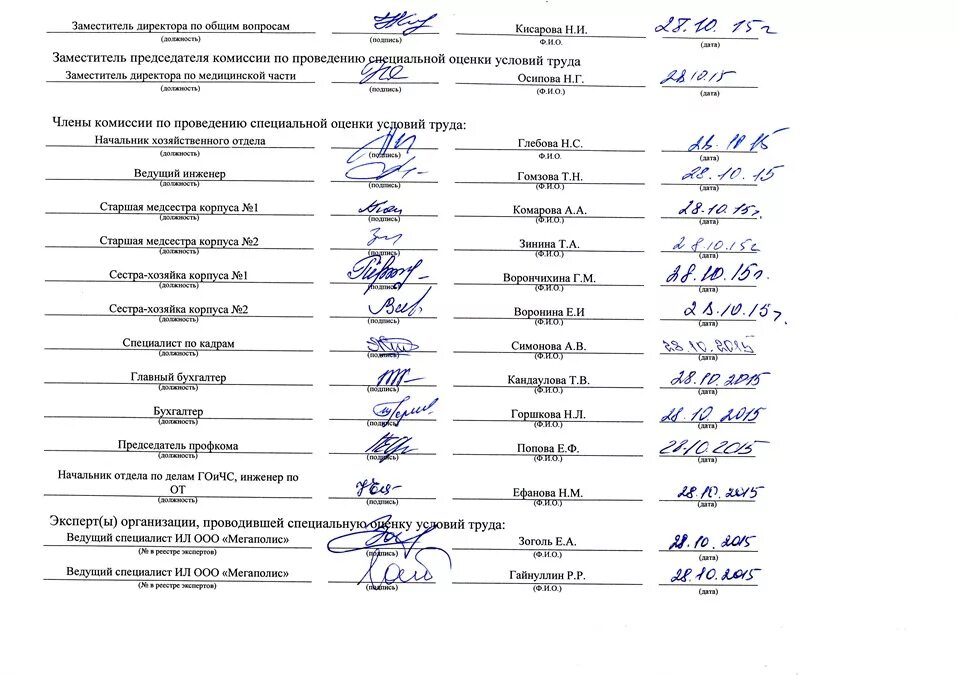 Заместитель директора по общим вопросам Кисарова Н.И. 28.10.15г
(должность) (подпись) Ф.И.О. (дата)
Заместитель председателя комиссии по проведению специальной оценки условий труда
Заместитель директора по медицинской части Осипова Н.Г. 28.10.15
(должность) (подпись) (Ф.И.О.) (дата)
Члены комиссии по проведению специальной оценки условий труда:
Начальник хозяйственного отдела Глебова Н.С.
(должность) (подпись) Ф.И.О. (дата)
Ведущий инженер Гомзова Т.Н. 28.10.15
(должность) (подпись) (Ф.И.О.) (дата)
Старшая медсестра корпуса №1 Комарова А.А. 28.10.15г.
(должность) (подпись) (Ф.И.О.) (дата)
Старшая медсестра корпуса №2 Зинина Т.А. 28.10.15г
(должность) (подпись) (Ф.И.О.) (дата)
Сестра-хозяйка корпуса №1 Ворончихина Г.М. 28.10.15г.
(должность) (подпись) (Ф.И.О.) (дата)
Сестра-хозяйка корпуса №2 Воронина Е.И 28.10.15г.
(должность) (подпись) (Ф.И.О.) (дата)
Специалист по кадрам Симонова А.В. 28.10.2015
(должность) (подпись) (Ф.И.О.) (дата)
Главный бухгалтер Кандаулова Т.В. 28.10.2015
(должность) (подпись) (Ф.И.О.) (дата)
Бухгалтер Горшкова Н.Л. 28.10.2015
(должность) (подпись) (Ф.И.О.) (дата)
Председатель профкома Попова Е.Ф. 28.10.2015
(должность) (подпись) (Ф.И.О.) (дата)
Начальник отдела по делам ГОиЧС, инженер по
ОТ Ефанова Н.М. 28.10.2015
(должность) (подпись) (Ф.И.О.) (дата)
Эксперт(ы) организации, проводившей специальную оценку условий труда:
Ведущий специалист ИЛ ООО «Мегаполис» Зоголь Е.А. 28.10.2015
(№ в реестре экспертов) (подпись) (Ф.И.О.) (дата)
Ведущий специалист ИЛ ООО «Мегаполис» Гайнуллин Р.Р. 28.10.2015
(№ в реестре экспертов) (подпись) (Ф.И.О.) (дата)